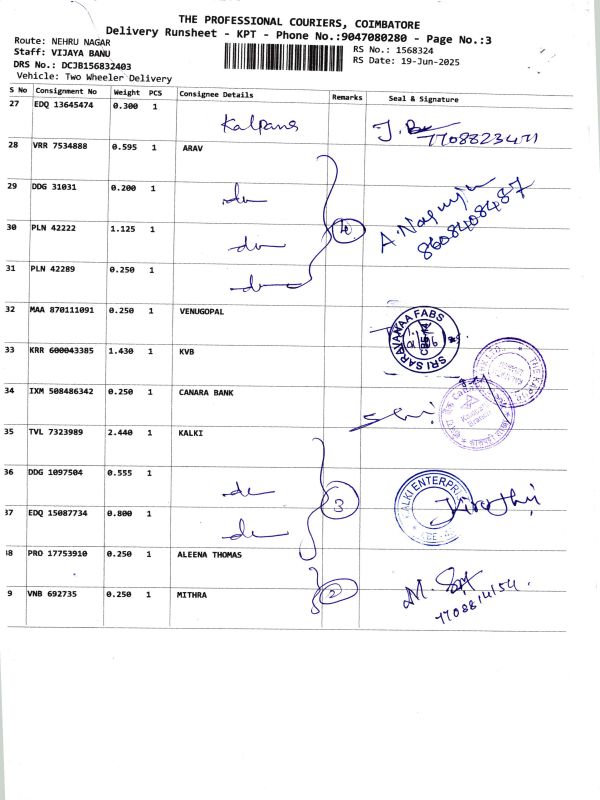 THE PROFESSIONAL COURIERS, COIMBATORE
Delivery Runsheet - KPT - Phone No.:9047080280 - Page No.:3
Route: NEHRU NAGAR
RS No.: 1568324
Staff: VIJAYA BANU
RS Date: 19-Jun-2025
DRS No.: DCJB156832403
Vehicle: Two Wheeler Delivery
S No Consignment No Weight PCS Consignee Details Remarks Seal & Signature
27 EDQ 13645474 0.300 1 Kalpana
28 VRR 7534888 0.595 1 ARAV
29 DDG 31031 0.200 1
30 PLN 42222 1.125 1 4
A. Nagu
8608408487
31 PLN 42289 0.250 1
32 MAA 870111091 0.250 1 VENUGOPAL
SRI SARAVANAA FABS
33 KRR 600043385 1.430 1 KVB
34 IXM 508486342 0.250 1 CANARA BANK
35 TVL 7323989 2.440 1 KALKI
36 DDG 1097504 0.555 1
3
KALKI ENTERPRI
37 EDQ 15087734 0.800 1
38 PRO 17753910 0.250 1 ALEENA THOMAS
9 VNB 692735 0.250 1 MITHRA 2